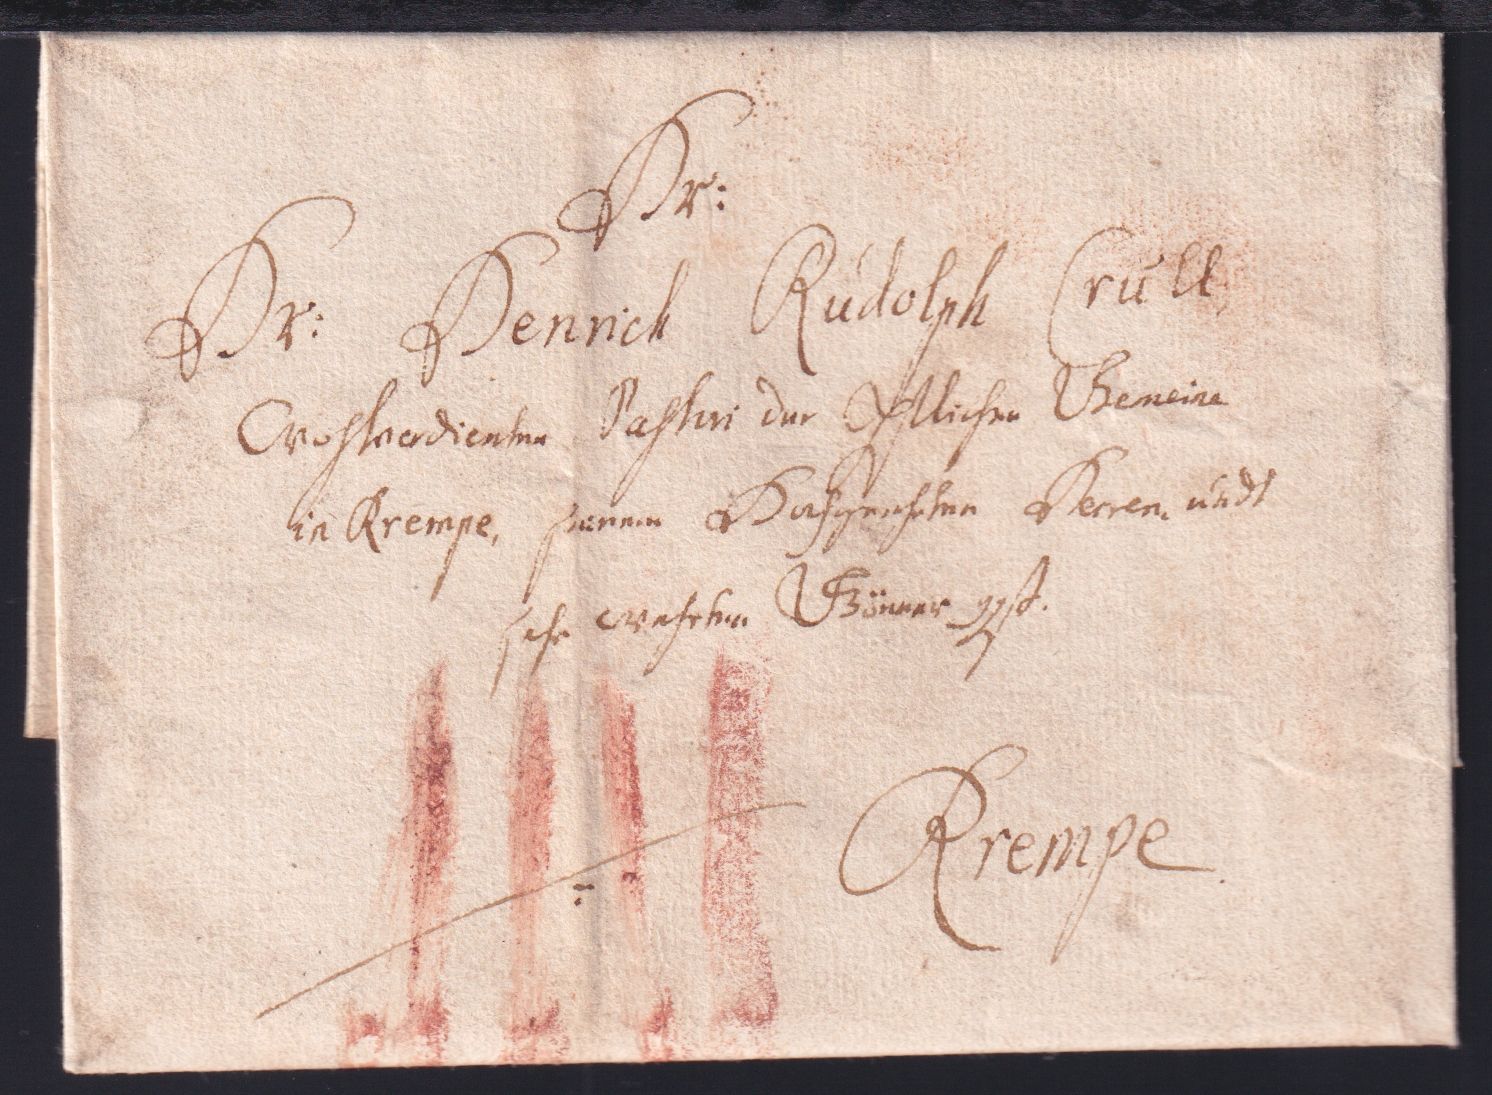 Hr:
Hr: Henrich Rudolph Crull
Wohlverdienten Pastori der Christlichen Gemeine
in Krempe, seinem Hochgeehrten Herren undt
sehr wehrten Gönner
Krempe